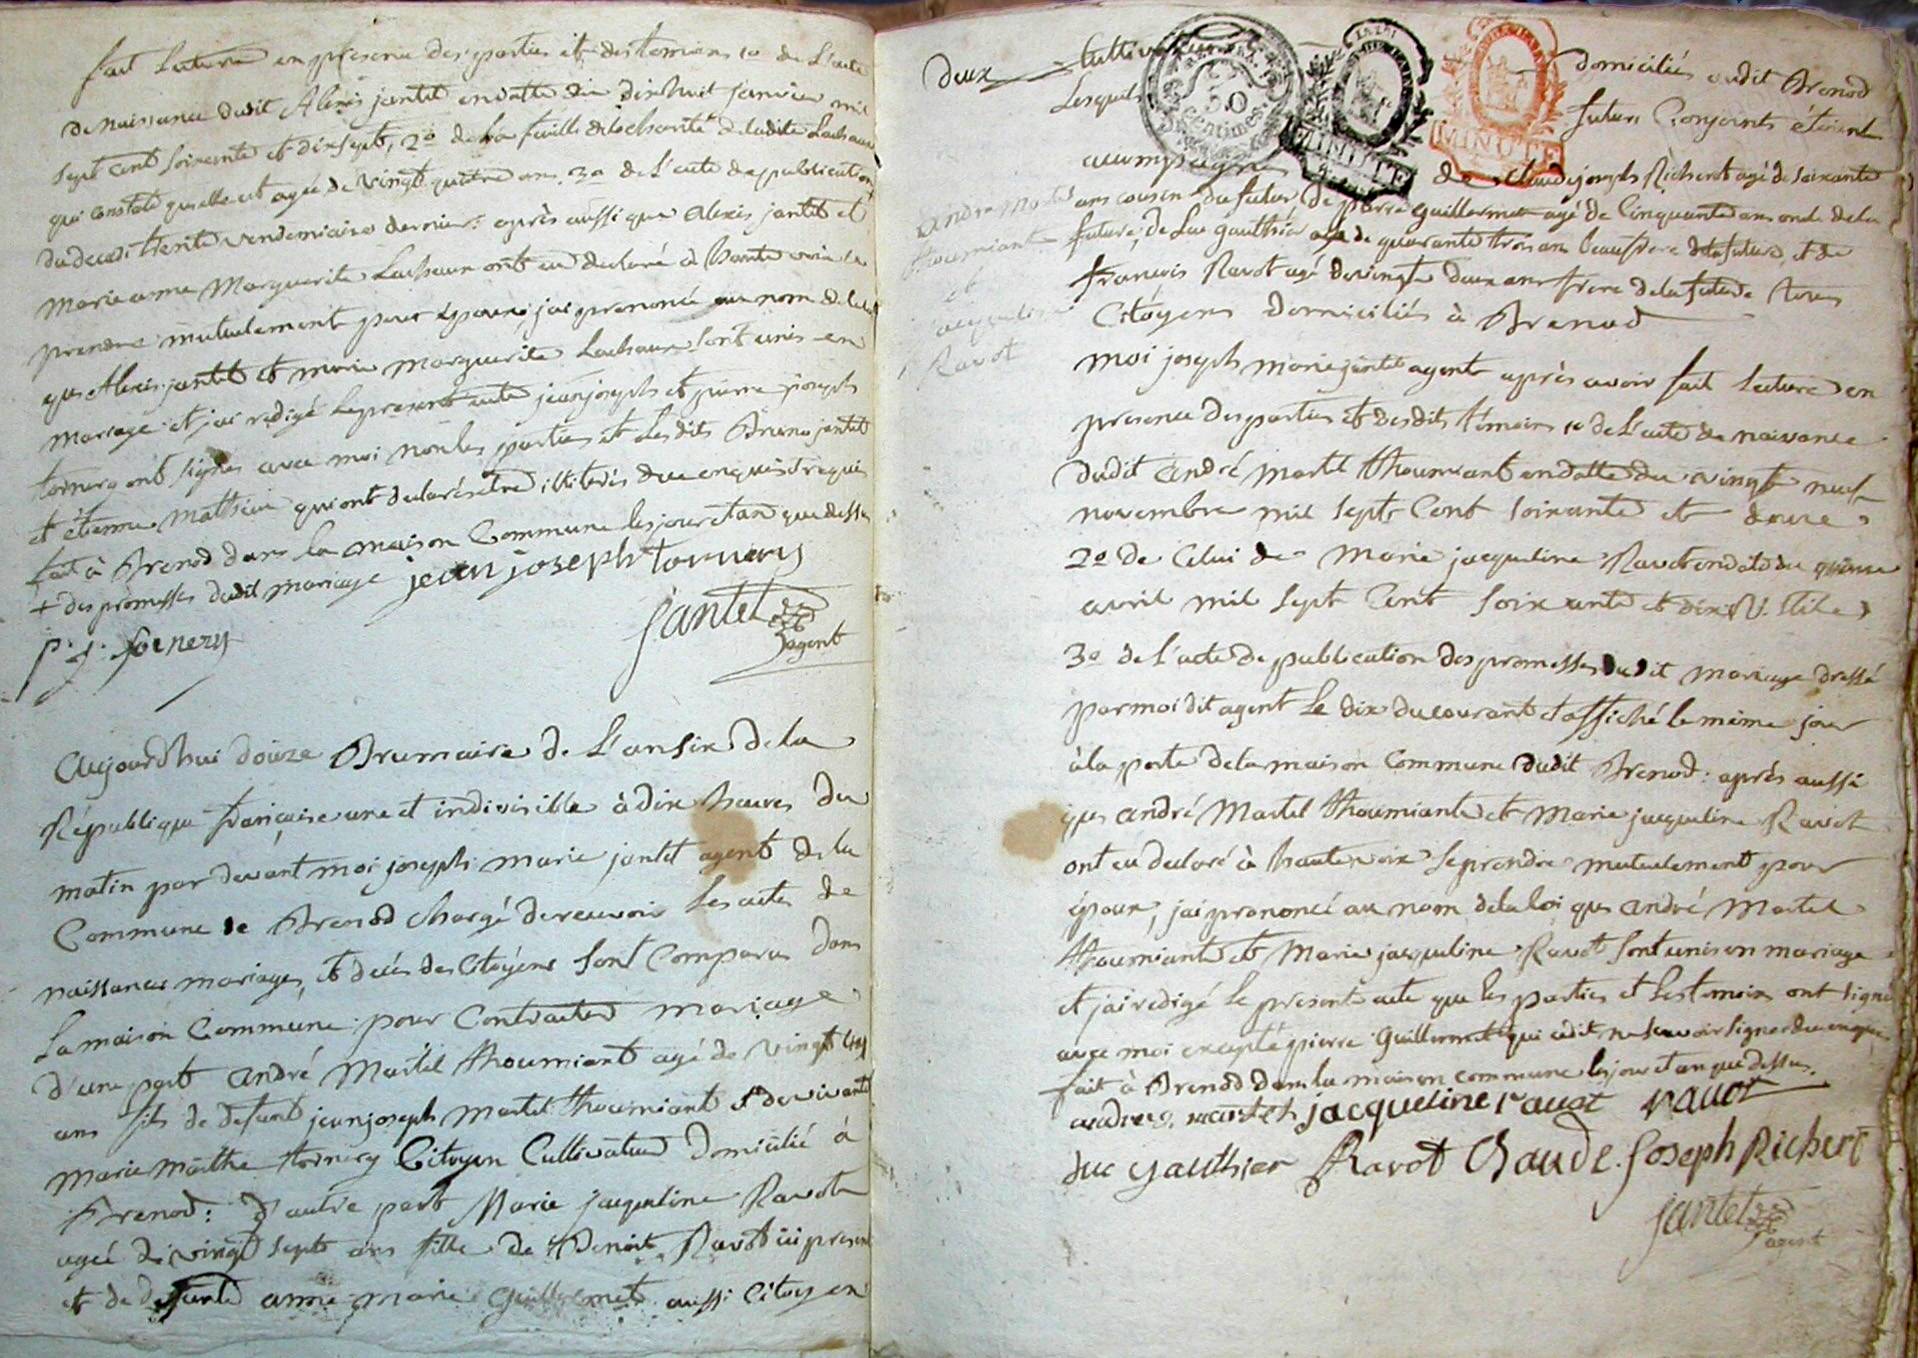 fait lecture en presence des parties et des temoins 1o de L'acte
de naissance dudit Alexis jantet en datte du dix huit janvier mil
sept cent soixante et dix sept, 2o de la feuille de ladite Lachaux
qui constate quelle est agée de vingt quatre ans 3o de L'acte de publication
du decadi trente vendemiaire dernier: après aussi que Alexis jantet et
marie anne Marguerite Lachaux ont eu declaré à haute voix se
prendre mutuelement pour époux, jai prononcé au nom de la loi
que Alexis jantet et marie marguerite Lachaux sont unis en
mariage et jai redigé le present acte jean joseph et pierre joseph
tornery ont signés avec moi non les parties et lesdits Bruno jantet
et étienne mathieu qui ont declarés etre illiterés de ce enquis et requis
fait à Brenod dans la maison Commune les jour et an que dessus
+ des promesses dudit mariage jean joseph tornery
jantet agent
p. j. fornery
Aujourdhui douze Brumaire de L'an six de la
République française une et indivisible à dix heures du
matin par devant moi joseph marie jantet agent de la
Commune de Brenod chargé de recevoir les actes de
naissances mariages, et decés des Citoyens sont Comparus dans
La maison Commune pour Contracter mariage
d'une part andré Martel thoumiant agé de vingt
ans fils de defunt jean joseph Martel thoumiant et de vivante
marie marthe tornery Citoyen Cultivateur Domicilié à
Brenod: d'autre part Marie jacqueline Ravot
agée de vingt sept ans fille de Benoit Ravot ici present
et de defunte anne marie Guillermet aussi Citoyen
deux
Cultivateurs domiciliés audit Brenod
Lesquels futurs Conjoints étoient
50
centimes
MINUTE
MINUTE
accompagnés de Claude joseph Richerot agé de soixante
ans cousin du futur de pierre guillermet agé de Cinquante ans oncle de la
future, de Luc gauthier agé de quarante trois ans beaufrere de la future, et de
francois Ravot agé de vingt deux ans frere de la future tous
Citoyens domiciliés à Brenod
andré Martel
thoumiant
et
jacqueline
Ravot
moi joseph marie jantet agent après avoir fait lecture en
presence des parties et desdits temoins 1o de L'acte de naissance
dudit andré Martel thoumiant en datte du vingt neuf
novembre mil sept Cent soixante et douze
2o de Celui de Marie jacqueline Ravot en date du quinze
avril mil sept Cent soixante et dix V. stile
3o de L'acte de publication des promesses dudit mariage dressé
par moi dit agent le dix du courant et affiché le même jour
à la porte de la maison Commune dudit Brenod: aprés aussi
que andré Martel thoumiant et Marie jacqueline Ravot
ont eu declaré à haute voix se prendre mutuelement pour
époux, jai prononcé au nom de la loi que andré Martel
thoumiant et Marie jacqueline Ravot sont unis en mariage
et jai redigé le present acte que les parties et les temoins ont signé
avec moi excepté pierre Guillermet qui a dit ne scavoir signer de ce enquis
fait à Brenod dans la maison commune les jour et an que dessus.
andrez martel jacqueline ravot ravot
luc gauthier Ravot Claude joseph Richerot
jantet
agent